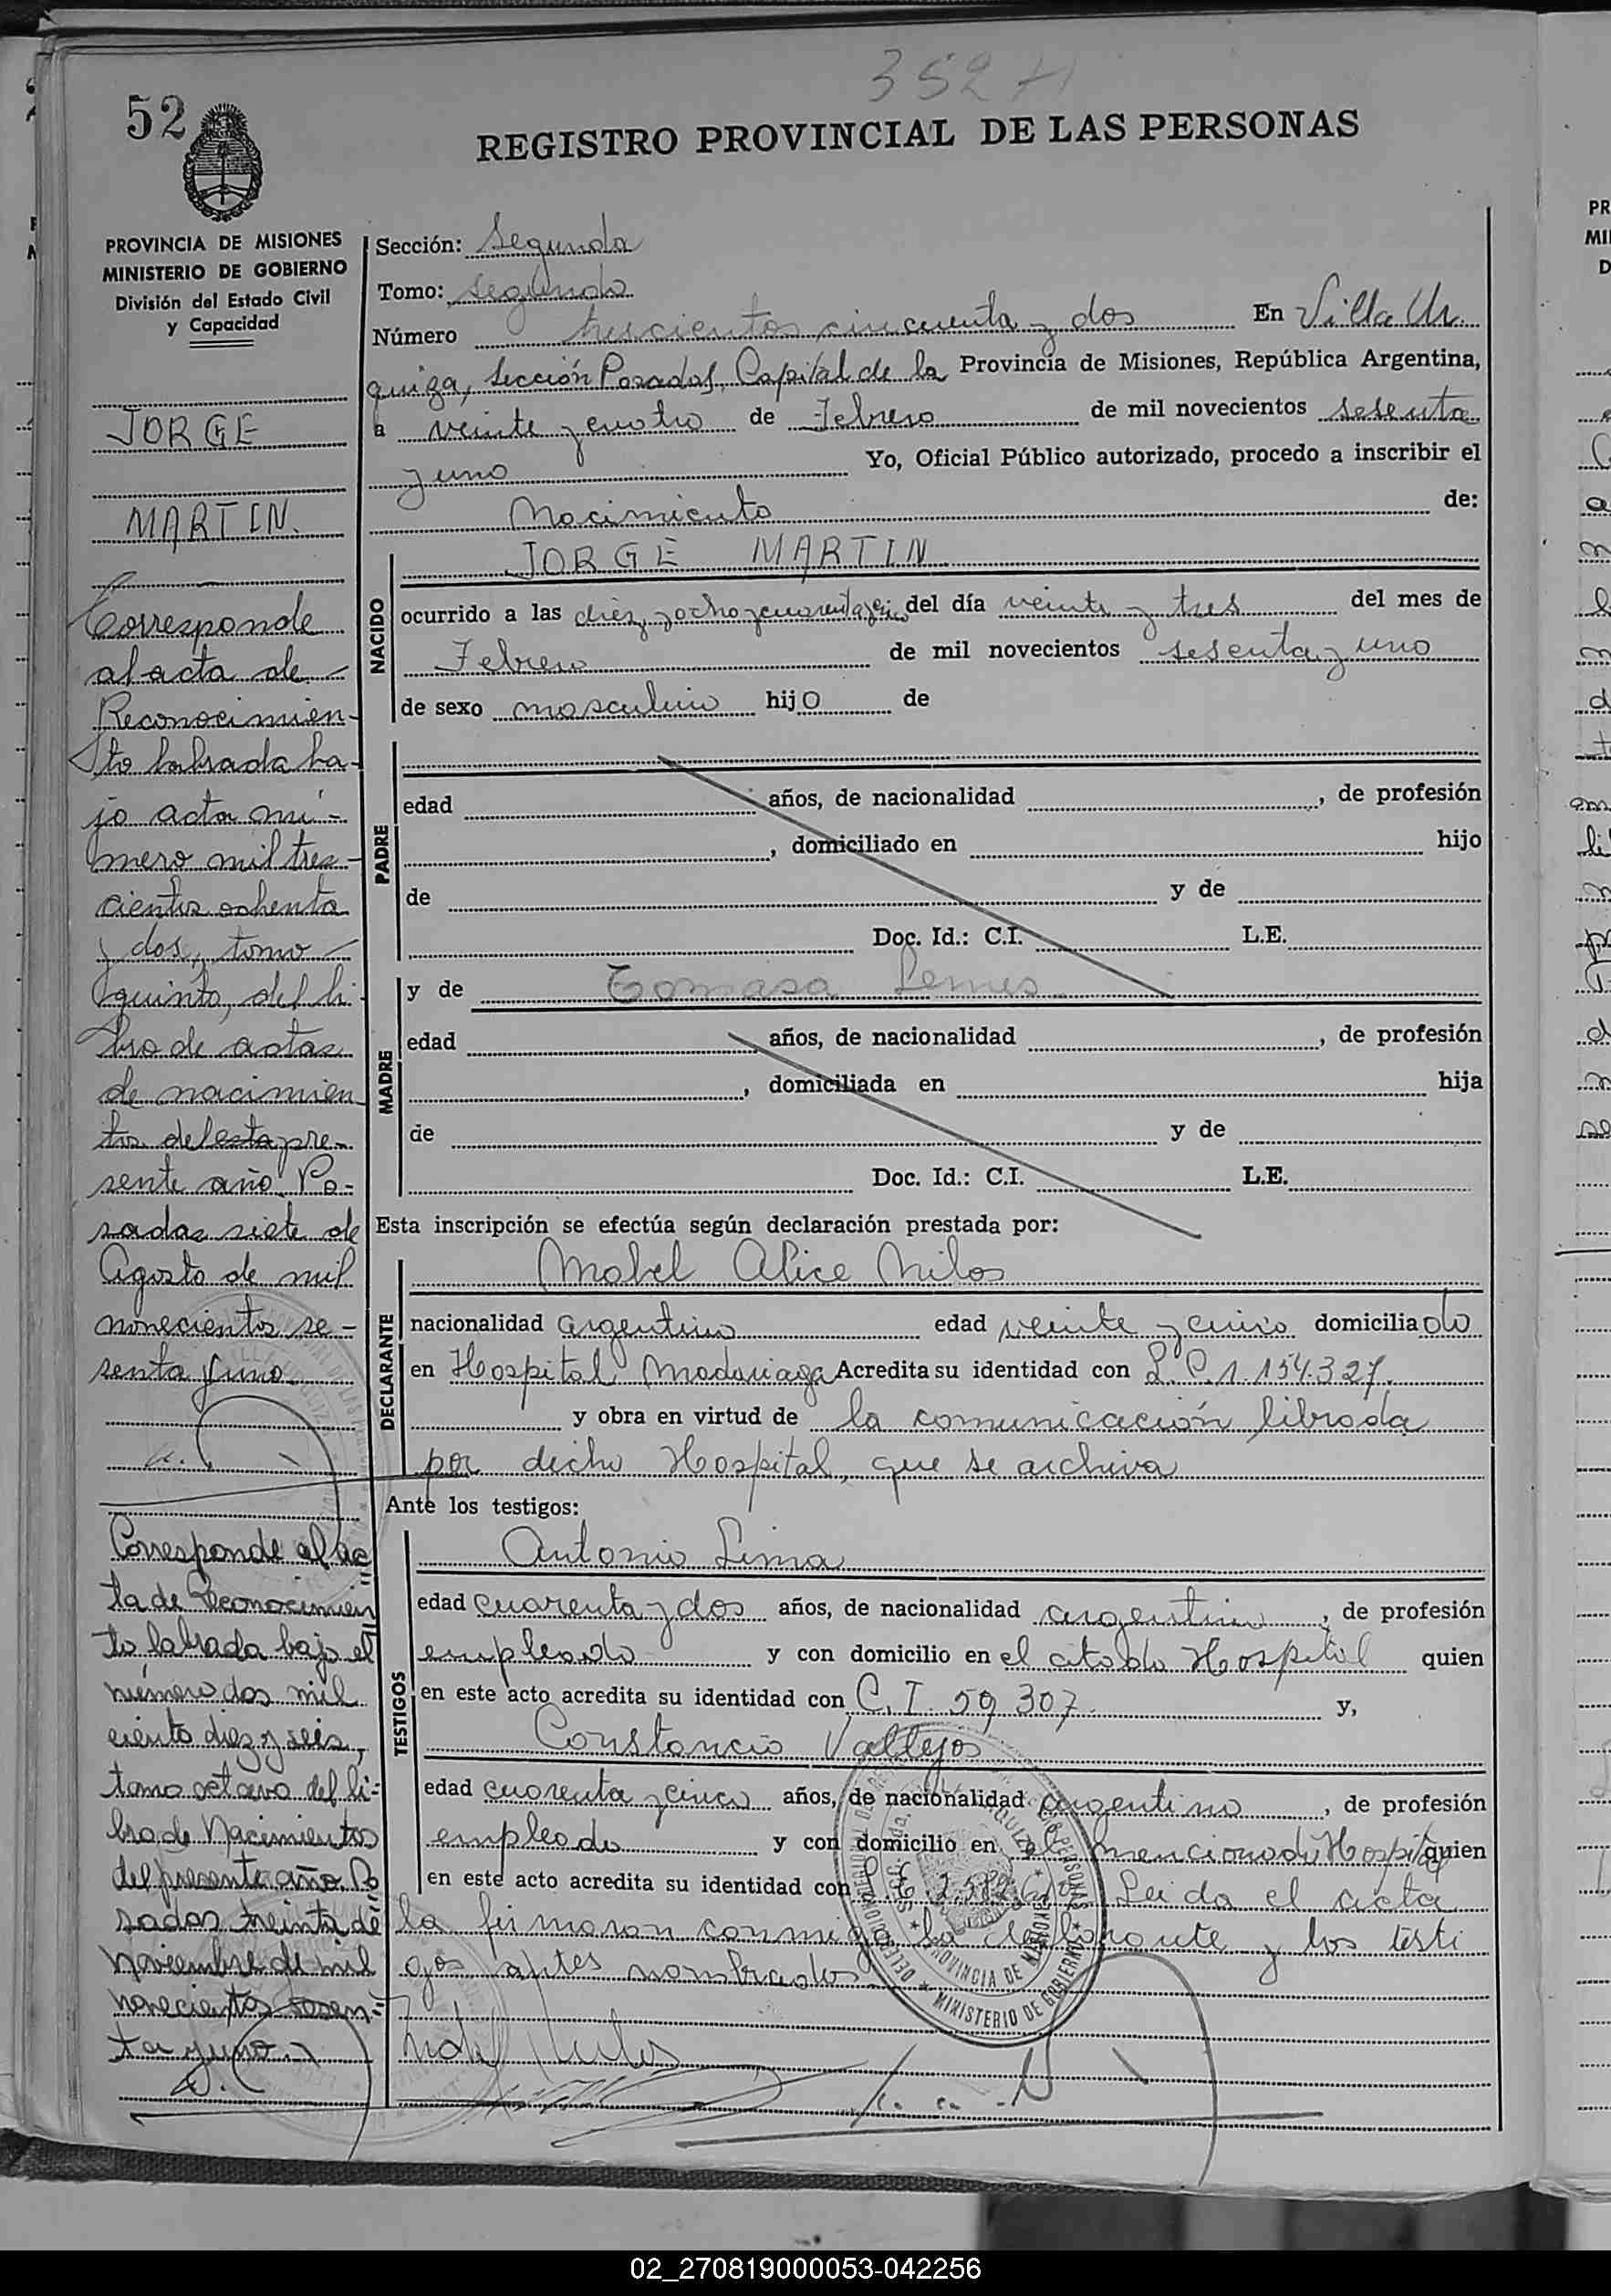 352
52
REGISTRO PROVINCIAL DE LAS PERSONAS
PROVINCIA DE MISIONES
MINISTERIO DE GOBIERNO
División del Estado Civil
y Capacidad
JORGE
MARTIN.
Corresponde
al acta de
Reconocimien-
to labrada ba-
jo acta nú-
mero mil tres-
cientos ochenta
y dos, tomo
quinto, del li-
bro de actas
de nacimien
tos del esta pre-
sente año. Po-
sadas siete de
Agosto de mil
novecientos se-
senta y uno
Corresponde al ac
ta de Reconocimien
to labrada bajo el
número dos mil
ciento diez y seis,
tomo octavo del li-
bro de Nacimientos
del presente año. Po
sadas treinta de
noviembre de mil
novecientos sesen-
ta y uno
Sección: Segunda
Tomo: segundo
Número trescientos cincuenta y dos En Villa Ur
quiza, Sección Posadas, Capital de la Provincia de Misiones, República Argentina,
a veinte y cuatro de Febrero de mil novecientos sesenta
y uno Yo, Oficial Público autorizado, procedo a inscribir el
Nacimiento de:
NACIDO
JORGE MARTIN
ocurrido a las diez y ocho y cuarenta y cinco del día veinte y tres del mes de
Febrero de mil novecientos sesenta y uno
de sexo masculino hijo de
PADRE
edad años, de nacionalidad , de profesión
, domiciliado en hijo
de y de
Doc. Id.: C.I. L.E.
MADRE
y de Tomasa Lemes
edad años, de nacionalidad , de profesión
, domiciliada en hija
de y de
Doc. Id.: C.I. L.E.
Esta inscripción se efectúa según declaración prestada por:
DECLARANTE
Mabel Alice Milos
nacionalidad argentina edad veinte y cinco domiciliado
en Hospital Madariaga Acredita su identidad con L.C. 1.154.327.
y obra en virtud de la comunicación librada
por dicho Hospital, que se archiva
Ante los testigos:
TESTIGOS
Antonio Lima
edad cuarenta y dos años, de nacionalidad argentino, de profesión
empleado y con domicilio en el citado Hospital quien
en este acto acredita su identidad con C.I. 59.307. y,
Constancio Vallejos
edad cuarenta y cinco años, de nacionalidad argentino, de profesión
empleado y con domicilio en el mencionado Hospital quien
en este acto acredita su identidad con Leida el acta
la firmaron conmigo la declarante y los testi
gos antes nombrados
PROVINCIA DE MISIONES
MINISTERIO DE GOBIERNO
02_270819000053-042256